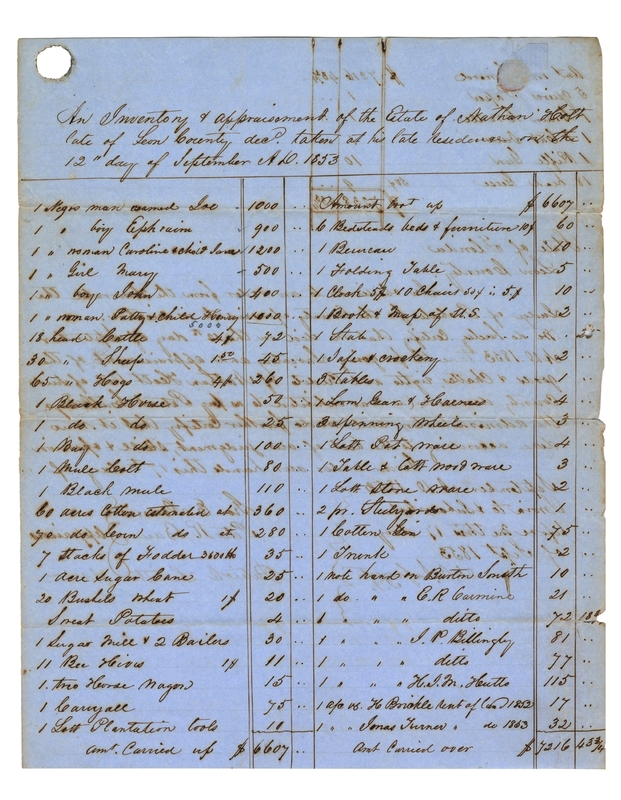 In Inventory & appraisement of the Estate of Nathan Holt
late of Leon County decd. taken at his late residence on the
12" day of September A.D. 1853
1 Negro man named Joe " 1000 ..
1 " boy Ephraim " 900 ..
1 " woman Caroline & child Jane 1200 ..
1 " Girl Mary " 500 ..
1 " boy John 400 ..
1 " woman Patty & Child Henry 1000 ..
5000
18 head Cattle 4$ 72 ..
30 " Sheep 1 50 45 ..
65 " Hogs 4$ 260 ..
1 Black Horse 50 ..
1 do do 25 ..
1 Bay do 100 ..
1 Mule Colt 80 ..
1 Black mule 110 ..
60 acres Cotton estimated at 360 ..
70 do Corn do at 280 ..
7 Stacks of Fodder 3500 lb 35 ..
1 acre Sugar Cane 25 ..
20 Bushels wheat 1$ 20 ..
Sweet Potatoes 4 ..
1 Sugar Mill & 2 Boilers 30 ..
11 Bee Hives 1$ 11 ..
1 two Horse Wagon 15 ..
1 Carryall 75 ..
1 Lott Plantation tools 10 ..
amt. Carried up $ 6607 ..
Amount brot up $ 6607 ..
6 Bedsteads beds & furniture 10$ 60 ..
1 Bureau 10 ..
1 Folding Table 5 ..
1 Clock 5$ 10 Chairs 50¢ is 5$ 10 ..
1 Book & Map of U.S. 2 ..
1 Slate .. 25
1 Safe & crockery 2 ..
3 Tables 1 ..
1 Loom Gear & Harness 4 ..
3 Spinning Wheels 3 ..
1 Lott Pot ware 4 ..
1 Table & Lott wood ware 3 ..
1 Lott Stone ware 2 ..
2 pr. Steelyards 1 ..
1 Cotton Gin 75 ..
1 Trunk 2 ..
1 Note hand on Burton Smith 10 ..
1 do " " E.R. 21 ..
1 " " ditto 72 18
1 " " " J.P. Billingly 81 ..
1 " " " ditto 77 ..
1 " " " H.J.M. Hutto 115 ..
1 a/c vs. H Brickle Rent of land 1852 17 ..
1 " " Jonas Turner " do 1853 32 ..
Amt Carried over $ 7216 43 3/4